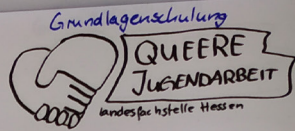 Grundlagenschulung
QUEERE
JUGENDARBEIT
landesfachstelle Hessen